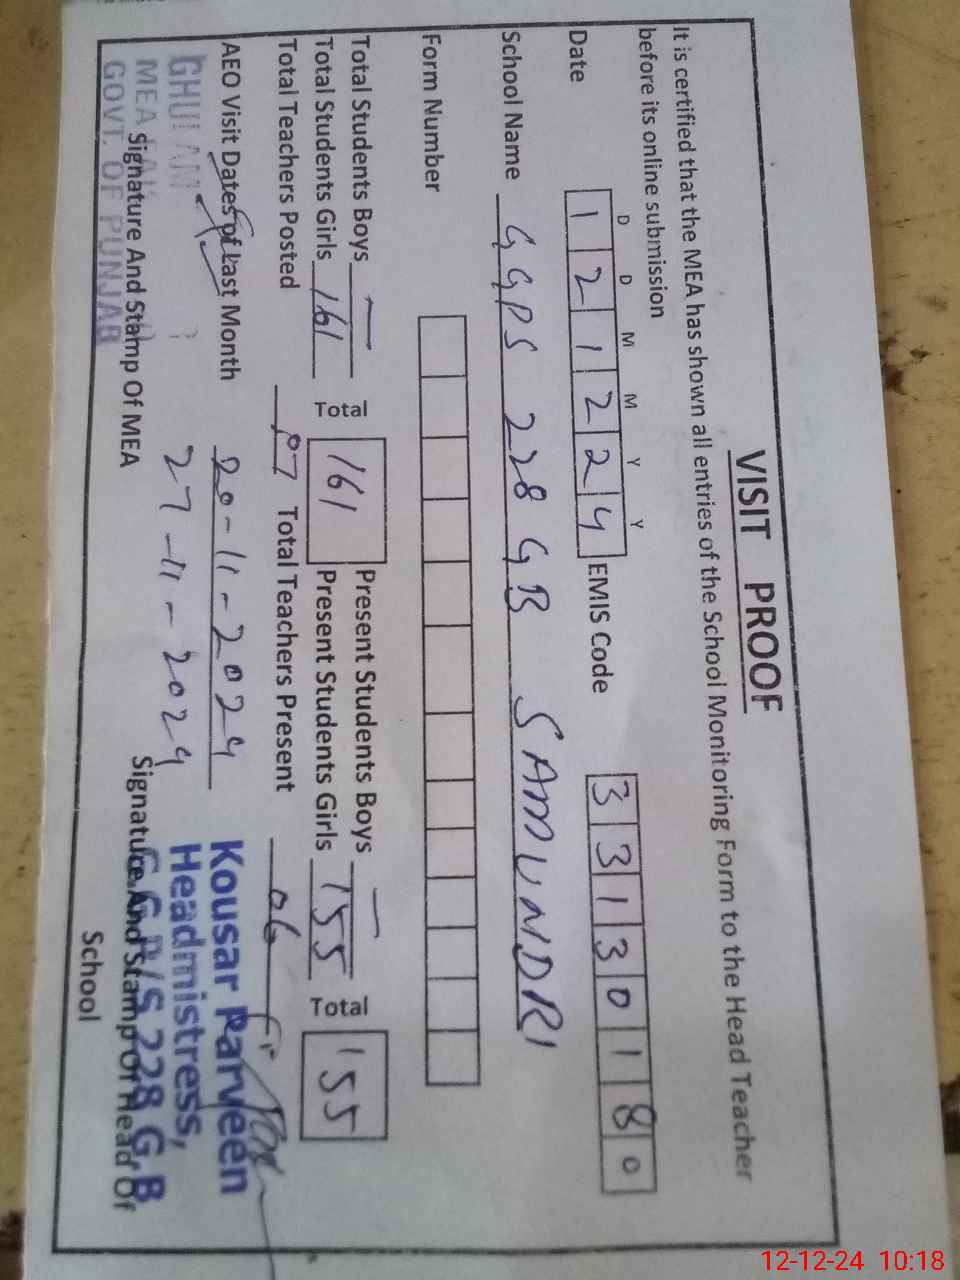 VISIT PROOF
It is certified that the MEA has shown all entries of the School Monitoring Form to the Head Teacher
before its online submission
D D M M Y Y
Date 1 2 1 2 2 4 EMIS Code 3 3 1 3 0 1 8 0
School Name GGPS 228 GB SAMUNDRI
Form Number
Total Students Boys — Present Students Boys —
Total Students Girls 161 Total 161 Present Students Girls 155 Total 155
Total Teachers Posted 07 Total Teachers Present 06
AEO Visit Dates of Last Month 20-11-2024
27-11-2024
GHULAM
MEA
GOVT. OF PUNJAB
Signature And Stamp Of MEA
Kousar Parveen
Headmistress,
G.G.P/S 228 G.B
Signature And Stamp Of Head Of
School
12-12-24 10:18